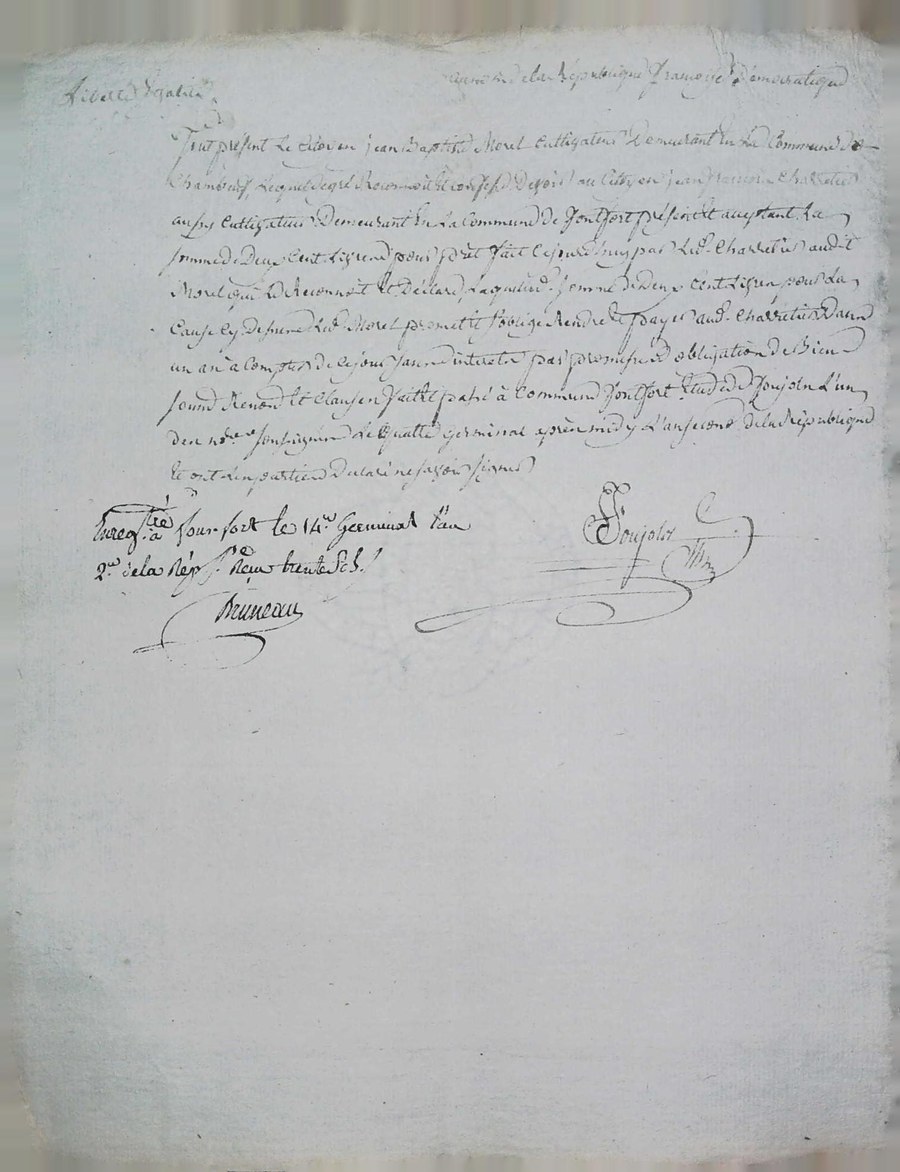 Liberté Égalité
au nom de la République françoise Démocratique
fut présent Le Citoyen jean Baptiste Morel Cultivateur Demeurant En La Commune de
Chambœuf, Lequel de gré Reconnoit et confesse Devoir au Citoyen jean françois Charretier
aussy Cultivateur Demeurant En La Commune de fontfort présent et aceptant La
somme de Deux Cent Livres pour prêt fait Cejourd'huy par Led. Charretier audit
Morel qui Le Reconnoit et Déclare, Laquelle d. somme de Deux Cent Livres pour La
Cause Cy dessus Led. Morel promet et s'oblige Rendre et payer aud. Charretier Dans
un an à Compter de Cejour sans interets par promesse obligation de Bien
soumd Renond et Clauses fait et passé à Commune fontfort Etude de Goujolz L'un
des nores soussignés Le quatre germinal après midy L'an second de la République
et ont Les parties Déclaré ne savoir signer
Enregtré à four-fort le 14e Germinal l'an
2e de la Rép f.e Reçu trente Sols
Goujolz
Bruneau